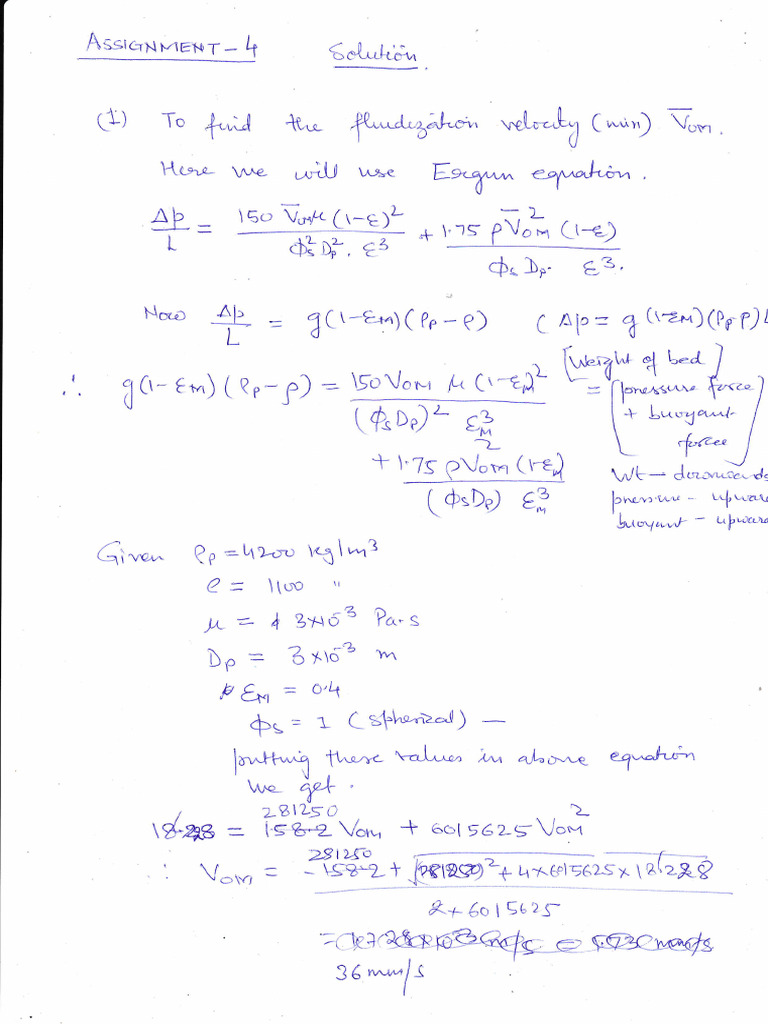 ASSIGNMENT-4 Solution.
(1) To find the fluidization velocity (min) V̄OM.
Here we will use Ergun equation.
Δp/L = 150 V̄OM μ (1-ε)²/Φs² Dp². ε³ + 1.75 ρ V̄OM² (1-ε)/Φs Dp. ε³.
Now Δp/L = g(1-εM)(ρp-ρ) (Δp = g(1-εM)(ρp-ρ)L
[Weight of bed]
∴ g(1-εM)(ρp-ρ) = 150 VOM μ (1-εM)²/(Φs Dp)² εM³
+ 1.75 ρ VOM² (1-εM)/(Φs Dp) εM³
= [pressure force
+ buoyant
force]
Wt - downwards
pressure - upward
buoyant - upward
Given ρp = 4200 kg/m³
ρ = 1100 "
μ = 3×10⁻³ Pa.s
Dp = 3×10⁻³ m
εM = 0.4
Φs = 1 (spherical) —
putting these values in above equation
we get.
281250
= 158.2 VOM + 6015625 VOM²
281250
∴ VOM = -158.2 + √(281250)² + 4×6015625×18228/2+6015625
36 mm/s